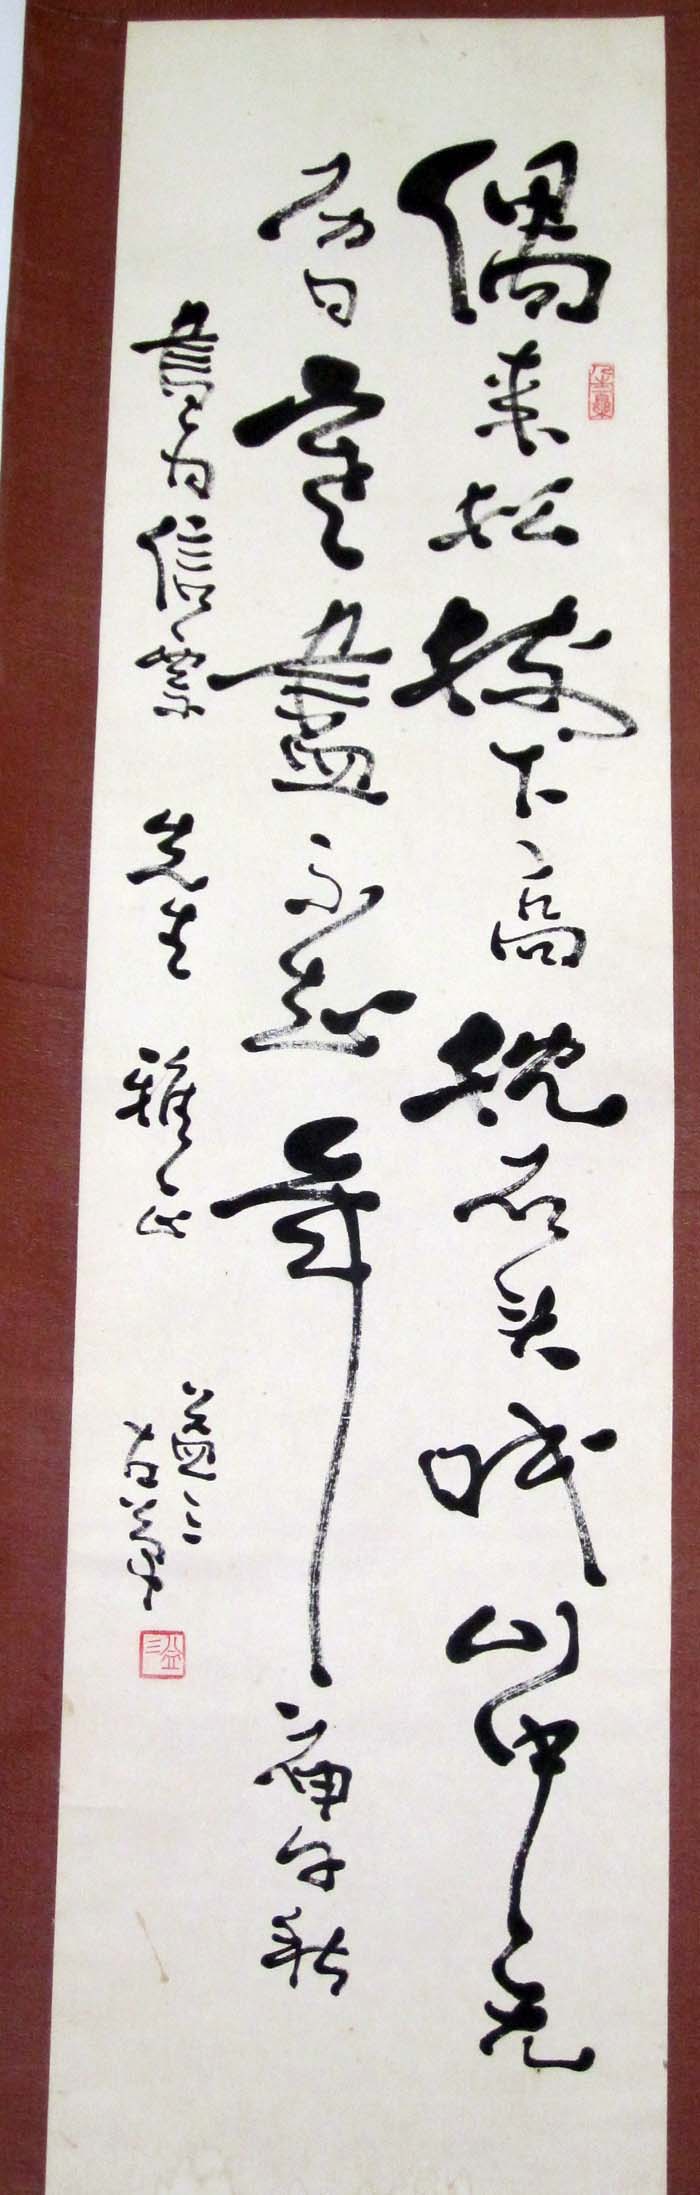 偶来松樹下高枕石头眠山中无
历日寒盡不知年 庚午秋
書为信 先生 雅正
益三